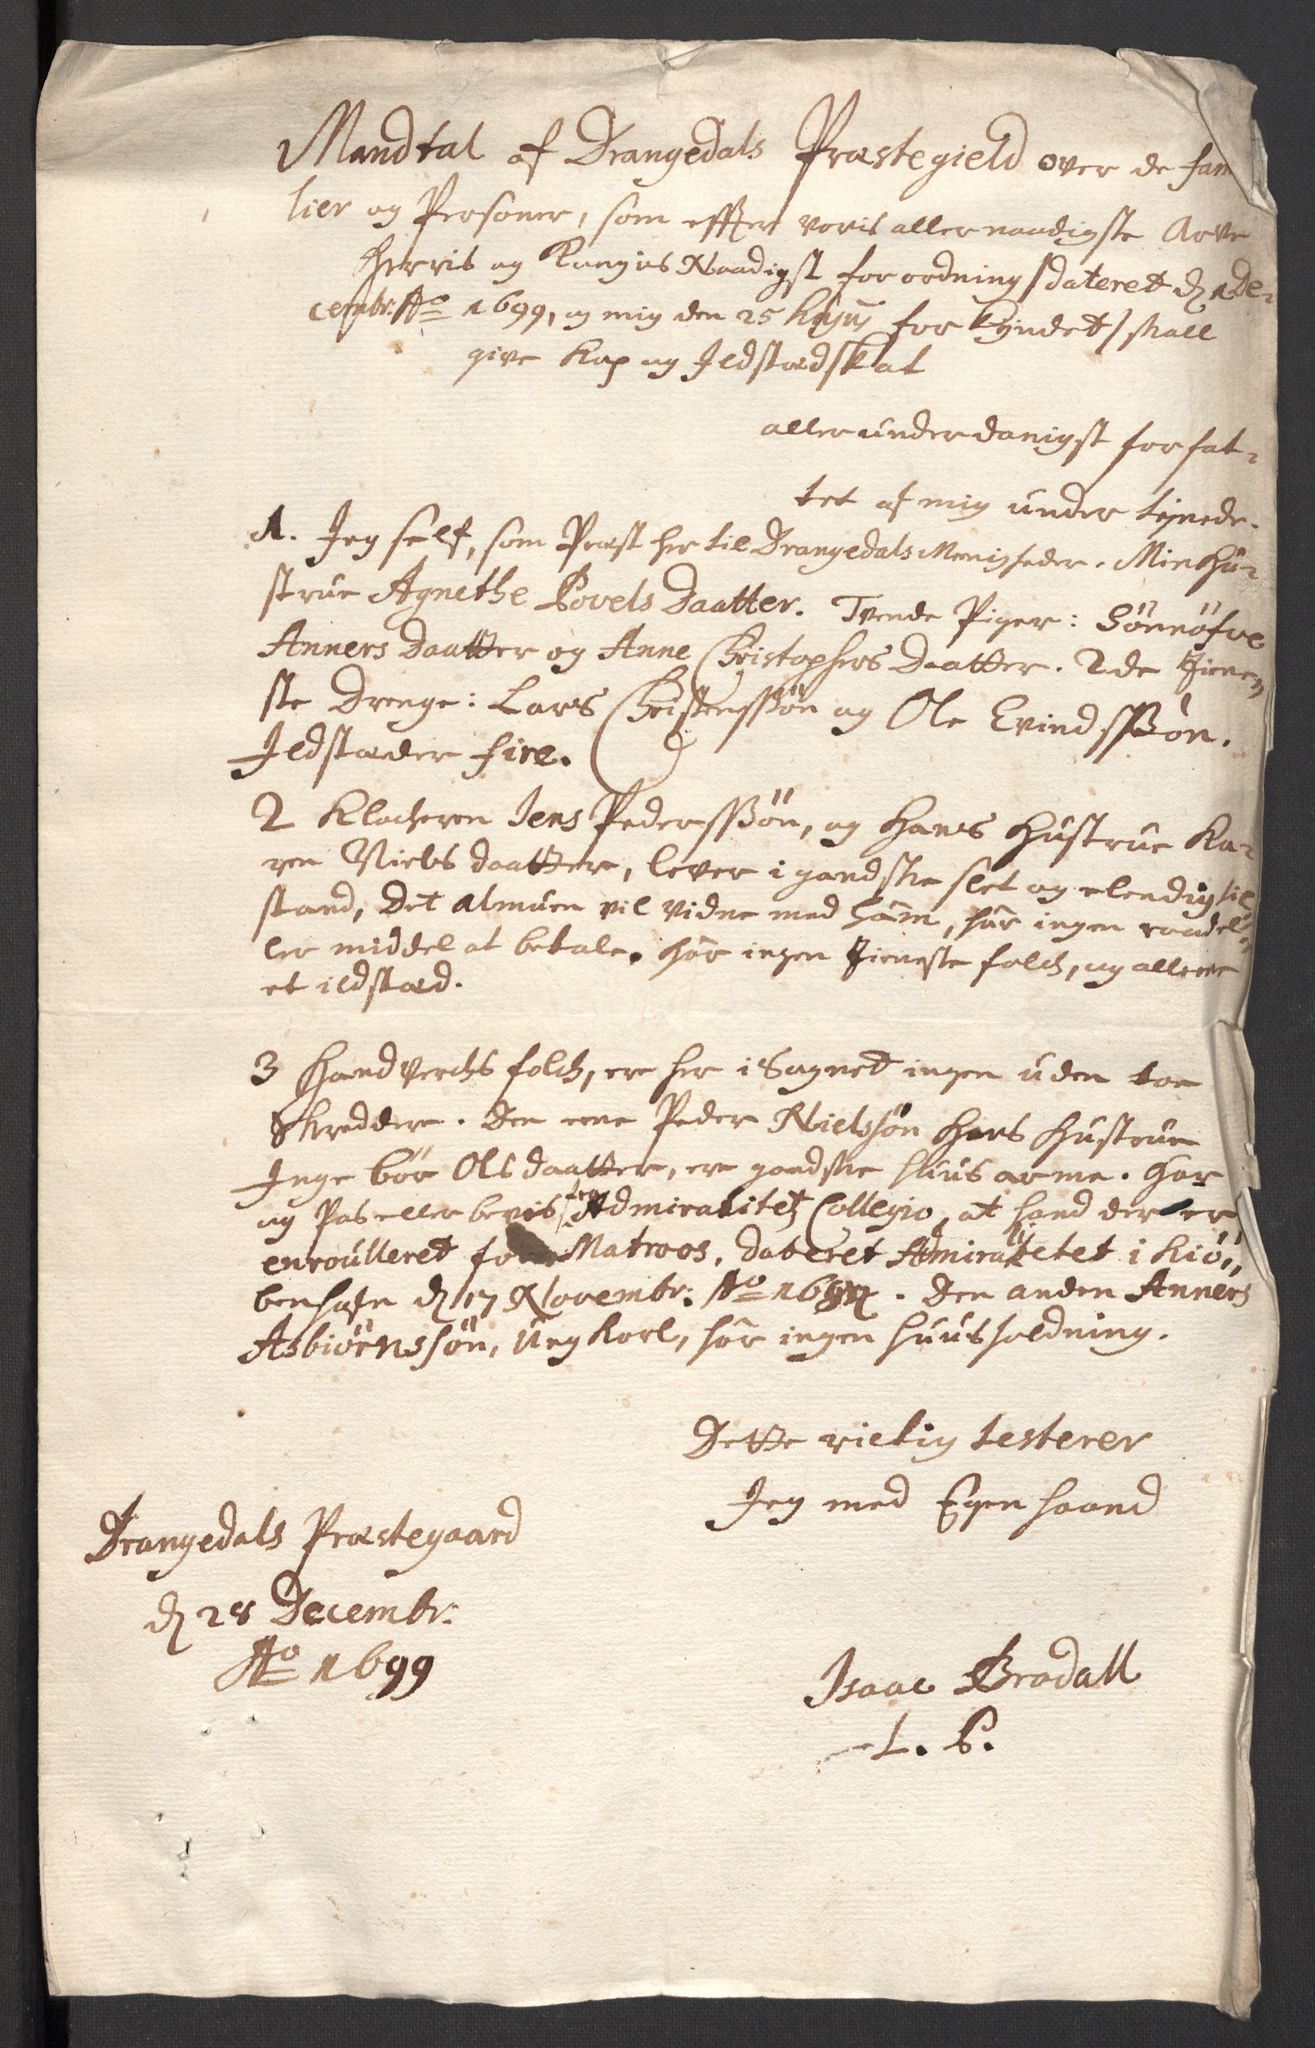 Mandtal af Drangedals Præstegield over de fam
lier og Personer, som efter voris allernaadigste Arve
Herris og Kongis Naadigst forordning /dateret d. 1 De-
cembr: Ao 1699, og mig den 25 hujus forkyndet/ skall
give Kop og Ildstædskat
allerunderdanigst forfat-
tet af mig under tegnede.
1. Jeg self, som Præst her til Drangedals Menigheder. Min Hu-
strue Agnethe Povels Daatter. Tvende Piger: Sönnöfve
Anners Daatter og Anne Christophers Daatter. 2de tiene
ste Drenge: Lars Christenssön og Ole Evindssön.
Ildstæder fire.
2 Klocheren Jens Pederssön, og Hans Hustrue Ka-
ren Niels daatter, lever i gandske slet og elendig til
stand, Det almuen vil vidne med ham, har ingen raad el-
ler middel at betale. har ingen tieneste folch, og allene
et ildstæd.
3 Handverchs folch, ere her i Sognet ingen uden toe
Skreddere. Den eene Peder Nielssön Hans Hustrue
Ingebör Olsdaatter, ere gandske huus arme. Har
og Pas eller bevis fra Admiralitets Collegio, at hand der er
enroulleret for Matroos, dateret Admiralitetet i Kiö-
benhafn d. 17 Novembr: Ao . Den anden Anners
Asbiörnssön, ung Karl, har ingen huusholdning.
Dette rictig testerer
Jeg med Egen haand
Drangedals Præstegaard
d. 28 Decembr:
Ao 1699
Isaac Bradall
L. S.